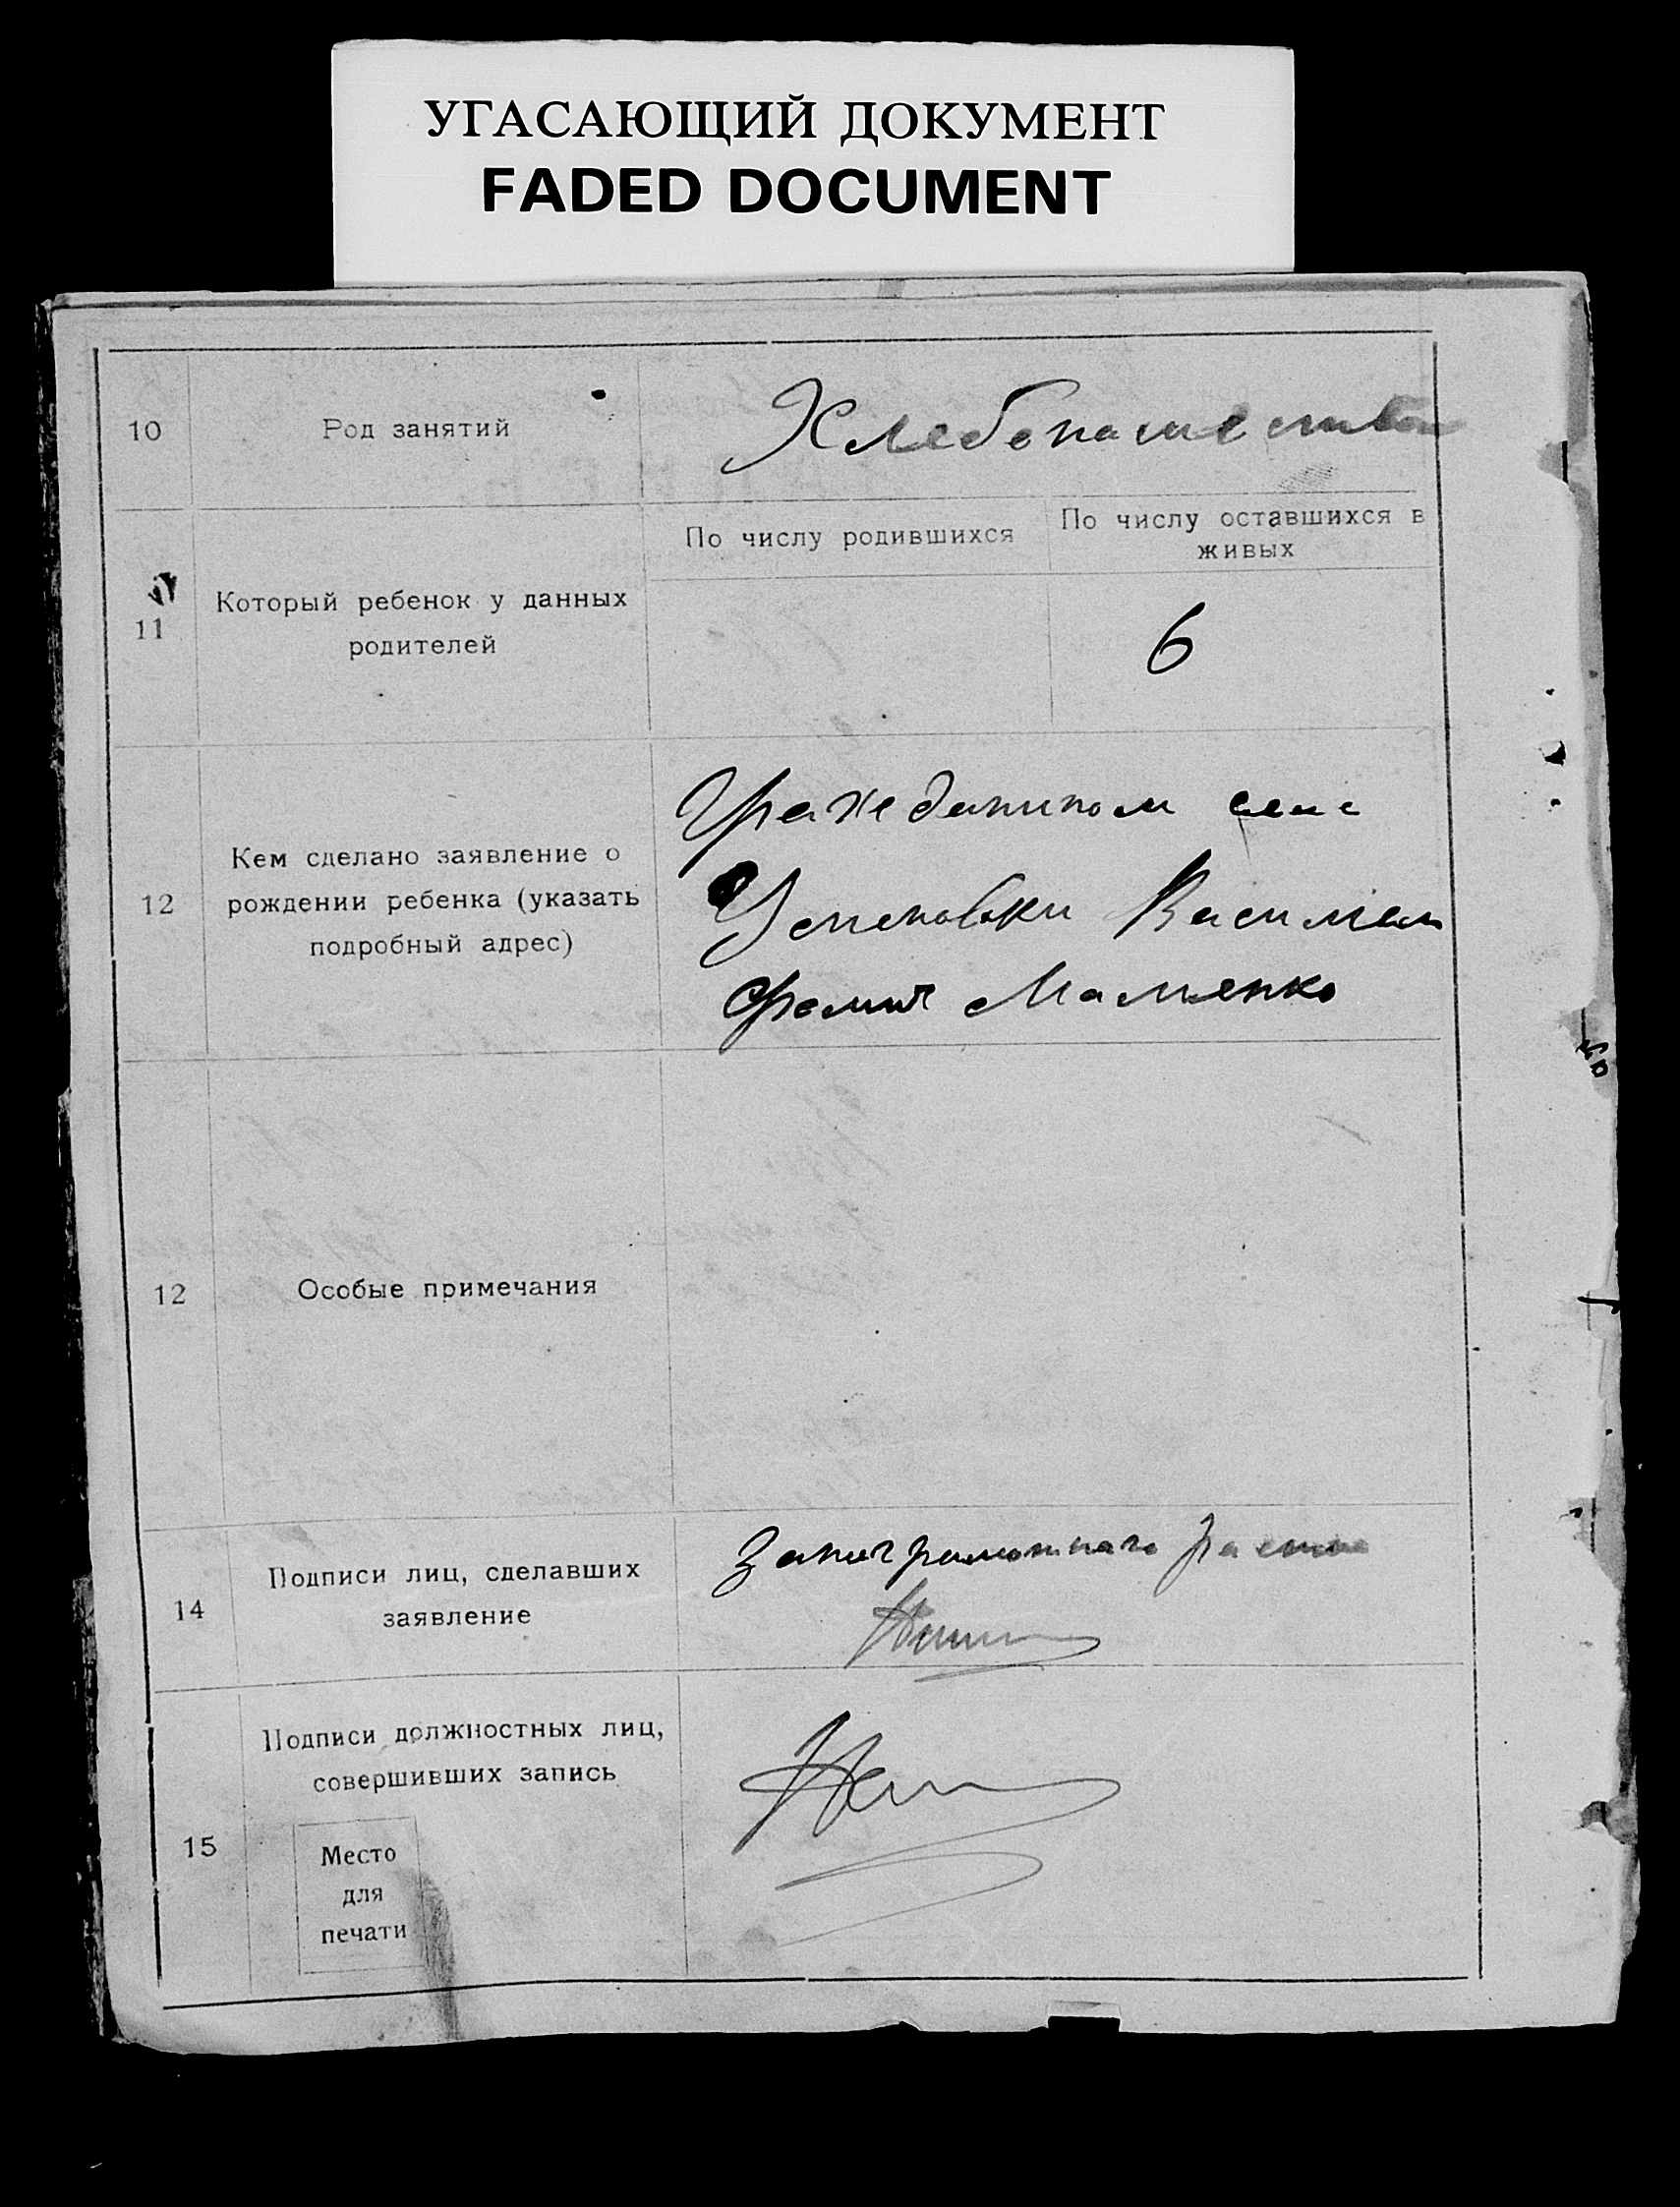 УГАСАЮЩИЙ ДОКУМЕНТ
FADED DOCUMENT
10
Род занятий
Хлебопашество
11
Который ребенок у данных
родителей
По числу родившихся
По числу оставшихся в
живых
6
12
Кем сделано заявление о
рождении ребенка (указать
подробный адрес)
Гражданином села
Успеновки
12
Особые примечания
14
Подписи лиц, сделавших
заявление
15
Подписи должностных лиц,
совершивших запись
Место
для
печати